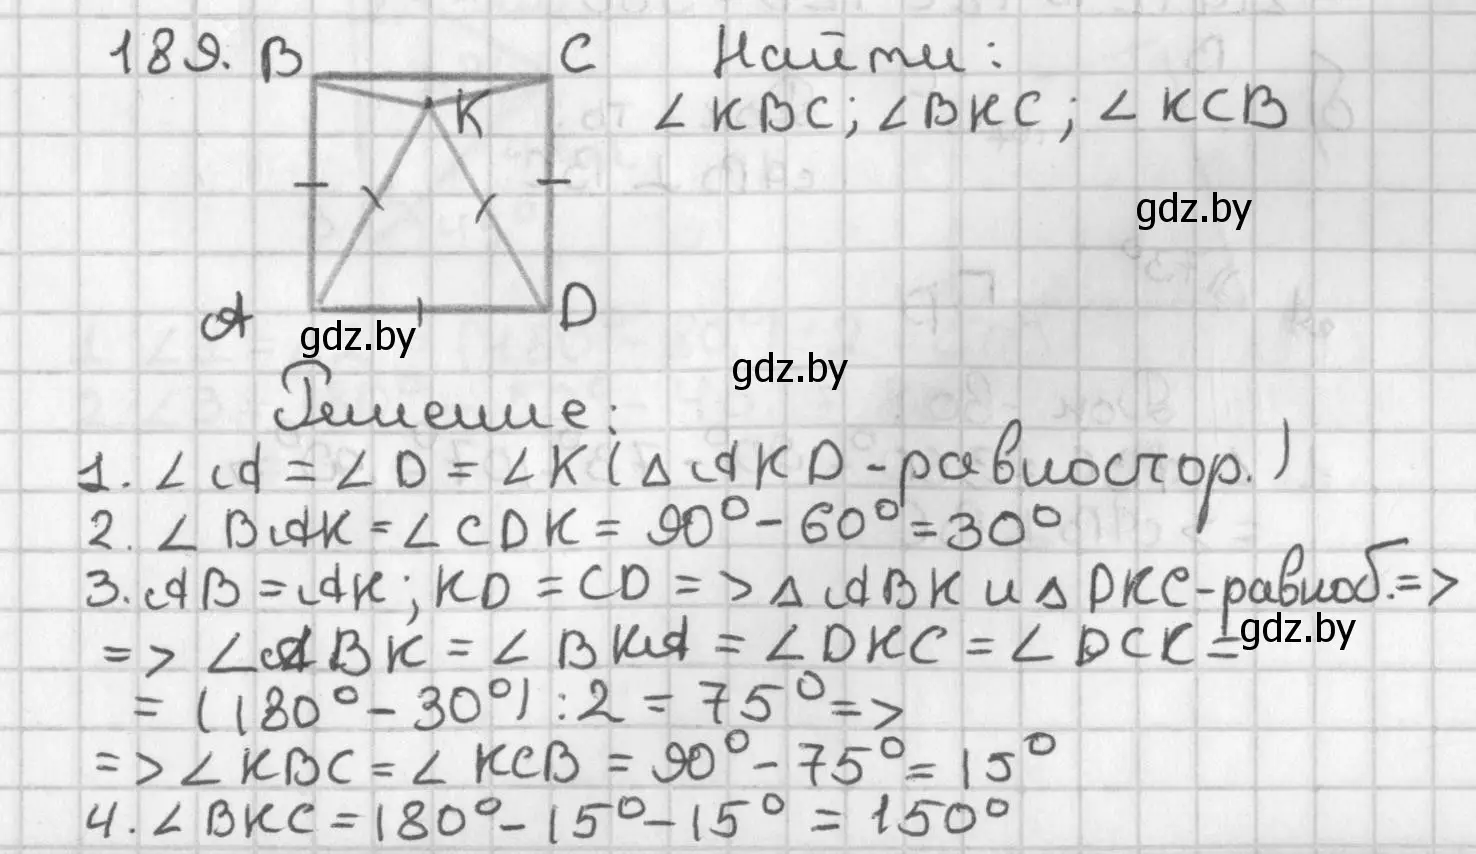 189. B C Найти:
∠KBC; ∠BKC; ∠KCB
K
gdz.by
A D
gdz.by
gdz.by
Решение:
1. ∠A = ∠D = ∠K (△AKD - равностор.)
2. ∠BAK = ∠CDK = 90° - 60° = 30°
3. AB = AK; KD = CD => △ABK и △DKC - равноб. =>
gdz.by
=> ∠ABK = ∠BKA = ∠DKC = ∠DCK =
= (180° - 30°) : 2 = 75° =>
=> ∠KBC = ∠KCB = 90° - 75° = 15°
4. ∠BKC = 180° - 15° - 15° = 150°